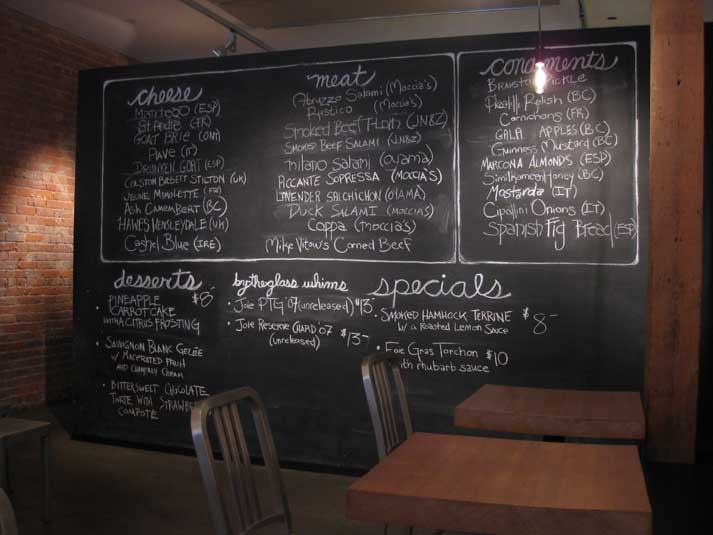 cheese
Manchego (ESP)
St André (FR)
GOAT BRIE (ONT)
PIAVE (IT)
DRUNKEN GOAT (ESP)
COLSTON BASSETT STILTON (UK)
JEUNE MIMOLETTE (FR)
ASH CAMEMBERT (BC)
HAWES WENSLEYDALE (UK)
Cashel Blue (IRE)
meat
Abruzzo Salami (Moccia's)
Rustico (Moccia's)
Smoked Beef (JN&Z)
SMOKED BEEF SALAMI (JN&Z)
milano salami (oyama)
PICCANTE SOPRESSA (MOCCIA'S)
LAVENDER SALCHICHON (OYAMA)
DUCK SALAMI (MOCCIAS)
Coppa (moccia's)
Mike Vitow's Corned Beef
condiments
BRANSTON PICKLE
Piccalilli Relish (BC)
Cornichons (FR)
GALA APPLES (BC)
Guinness Mustard (BC)
MARCONA ALMONDS (ESP)
Similkameen Honey (BC)
Mostarda (IT)
Cipollini Onions (IT)
Spanish Fig Bread (ESP)
desserts $8
• PINEAPPLE
CARROT CAKE
WITH A CITRUS FROSTING
• SAUVIGNON BLANC GELÉE
W/ MACERATED FRUIT
AND CHANTILLY CREAM
• BITTERSWEET CHOCOLATE
TORTE WITH STRAWBERRY
COMPOTE
bytheglass whims
• Joie PTG '07 (unreleased) $13
• Joie RESERVE CHARD 07 $13-
(unreleased)
specials
• SMOKED HAMHOCK TERRINE $8-
w/ a Roasted Lemon Sauce
• Foie Gras Torchon $10
with rhubarb sauce